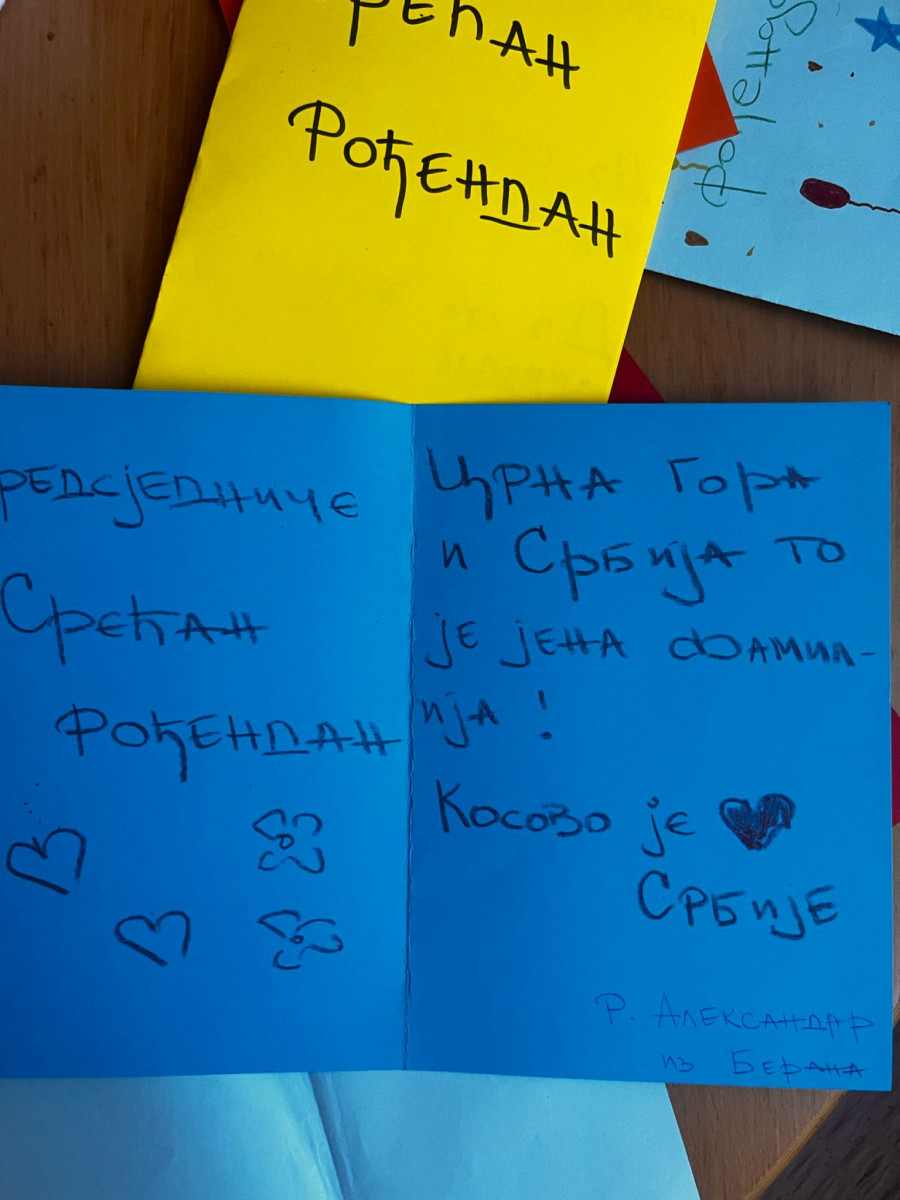 РЕЋАН
РОЂЕНДАН
Рођенд
РЕДСЈЕДНИЧЕ
СРЕЋАН
РОЂЕНДАН
ЦРНА ГОРА
И СРБИЈА ТО
ЈЕ ЈЕНА ФАМИЛ-
ИЈА!
КОСОВО ЈЕ ❤
СРБИЈЕ
Р. АЛЕКСАНДАР
ИЗ БЕРАНА